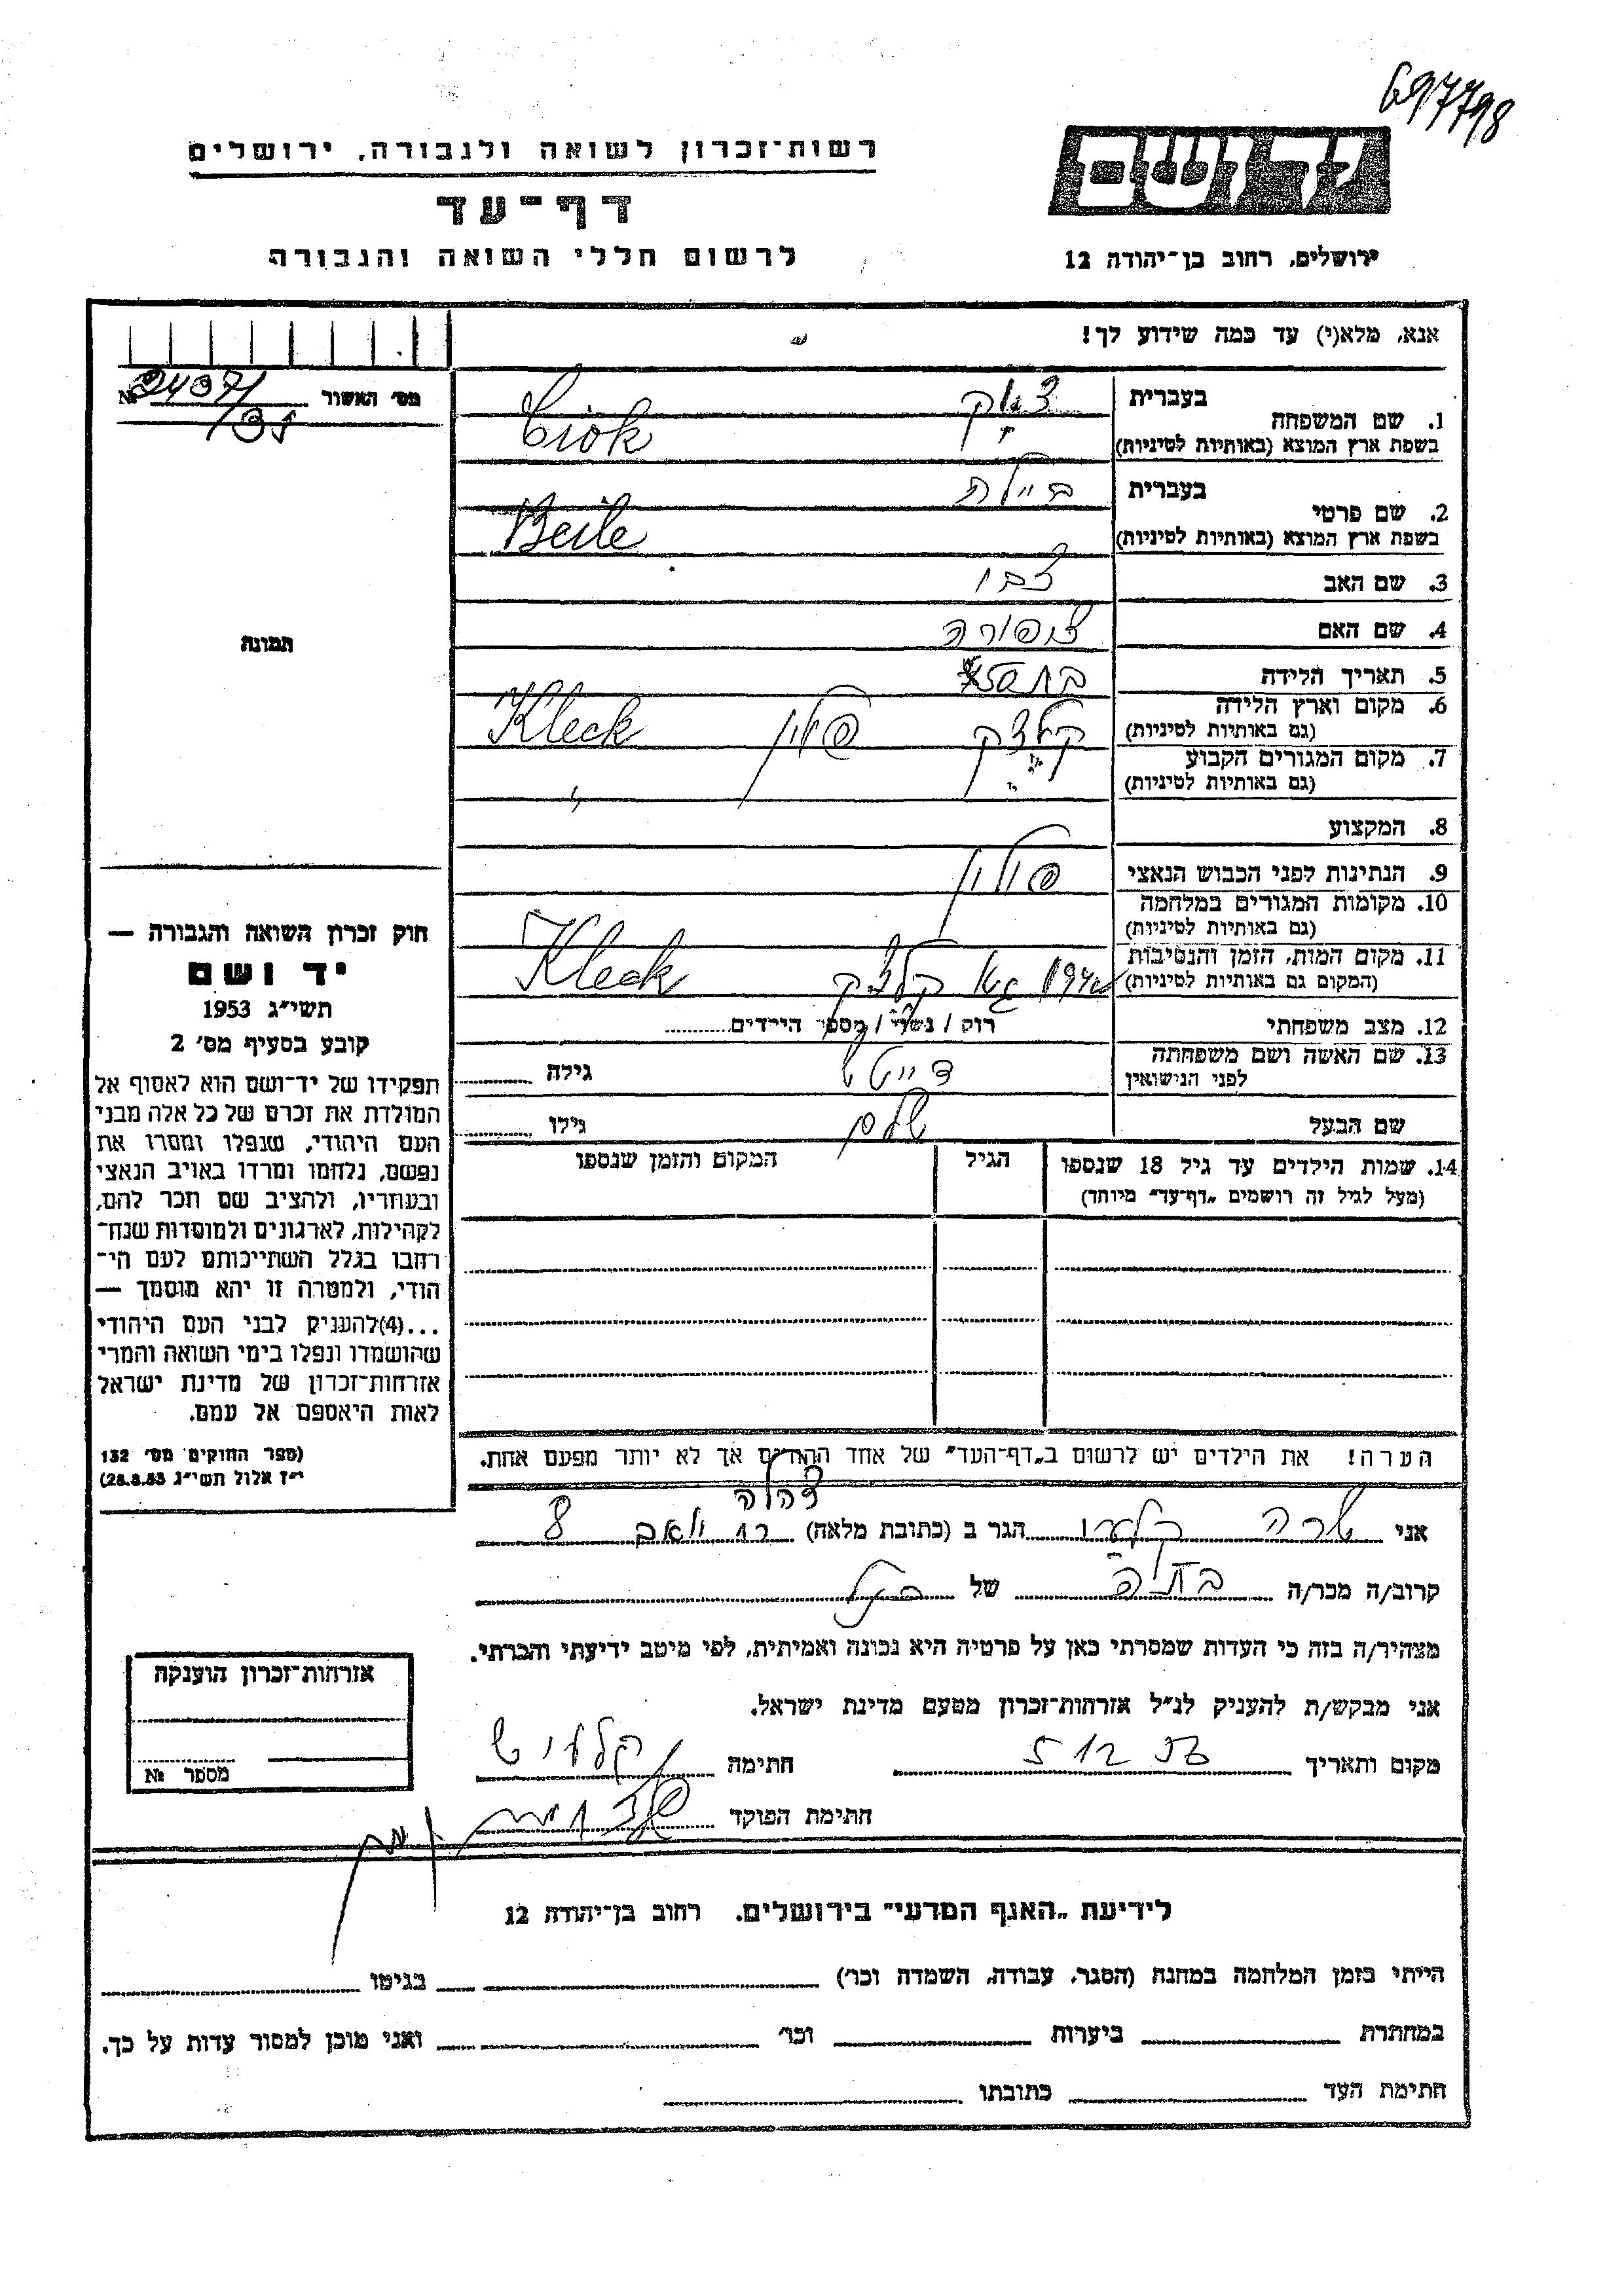 697798
יד ושם
רשות־זכרון לשואה ולגבורה, ירושלים
דף־עד
לרשום חללי השואה והגבורה
ירושלים, רחוב בן־יהודה 12
אנא, מלא(י) עד כמה שידוע לך!
מס׳ האשור №
1. שם המשפחה
בעברית
בשפת ארץ המוצא (באותיות לטיניות)
2. שם פרטי
בעברית ביילה
בשפת ארץ המוצא (באותיות לטיניות) Beile
3. שם האב
4. שם האם צפורה
5. תאריך הלידה
6. מקום וארץ הלידה
(גם באותיות לטיניות) קלצק פולין Kleck
7. מקום המגורים הקבוע
(גם באותיות לטיניות) " "
8. המקצוע
9. הנתינות לפני הכבוש הנאצי פולין
10. מקומות המגורים במלחמה
(גם באותיות לטיניות)
11. מקום המות, הזמן והנסיבות
(המקום גם באותיות לטיניות) קלצק Kleck
12. מצב משפחתי רוק / נשוי / מספר הילדים
13. שם האשה ושם משפחתה
לפני הנישואין גילה
שם הבעל גילו
14. שמות הילדים עד גיל 18 שנספו
(מעל לגיל זה רושמים „דף־עד״ מיוחד)
הגיל
המקום והזמן שנספו
הערה! את הילדים יש לרשום ב„דף־העד״ של אחד ההורים אך לא יותר מפעם אחת.
תמונה
חוק זכרון השואה והגבורה —
יד ושם
תשי״ג 1953
קובע בסעיף מס׳ 2
תפקידו של יד־ושם הוא לאסוף אל
המולדת את זכרם של כל אלה מבני
העם היהודי, שנפלו ומסרו את
נפשם, נלחמו ומרדו באויב הנאצי
ובעוזריו, ולהציב שם וזכר להם,
לקהילות, לארגונים ולמוסדות שנח־
רחבו בגלל השתייכותם לעם הי־
הודי, ולמטרה זו יהא מוסמך —
...(4)להעניק לבני העם היהודי
שהושמדו ונפלו בימי השואה והמרי
אזרחות־זכרון של מדינת ישראל
לאות היאספם אל עמם.
(ספר החוקים מס׳ 132
י״ז אלול תשי״ג 28.8.53)
אני שרה הגר ב (כתובת מלאה) 8
קרוב/ה מכר/ה של
מצהיר/ה בזה כי העדות שמסרתי כאן על פרטיה היא נכונה ואמיתית, לפי מיטב ידיעתי והכרתי.
אני מבקש/ת להעניק לנ״ל אזרחות־זכרון מטעם מדינת ישראל.
מקום ותאריך חתימה
חתימת הפוקד
אזרחות־זכרון הוענקה
מספר №
לידיעת „האגף המדעי״ בירושלים. רחוב בן־יהודה 12
הייתי בזמן המלחמה במחנה (הסגר, עבודה, השמדה וכו׳) בגיטו
במחתרת ביערות וכו׳ ואני מוכן למסור עדות על כך.
חתימת העד כתובתו